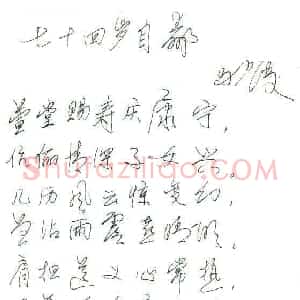 七十四岁自勖
萱堂赐寿庆康宁,
伉俪情深子女兴。
几历风云惊变幻,
曾沾雨露
肩担道义心常热,
Shufaziliao.com